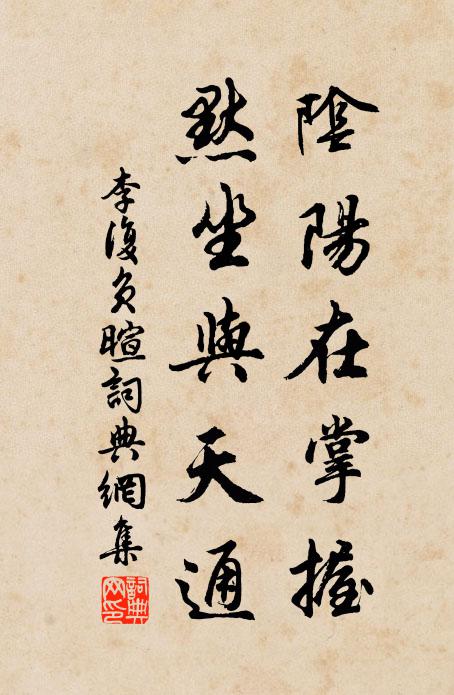 陰陽在掌握
默坐與天通
李復負暄詞典網集
詞典網印